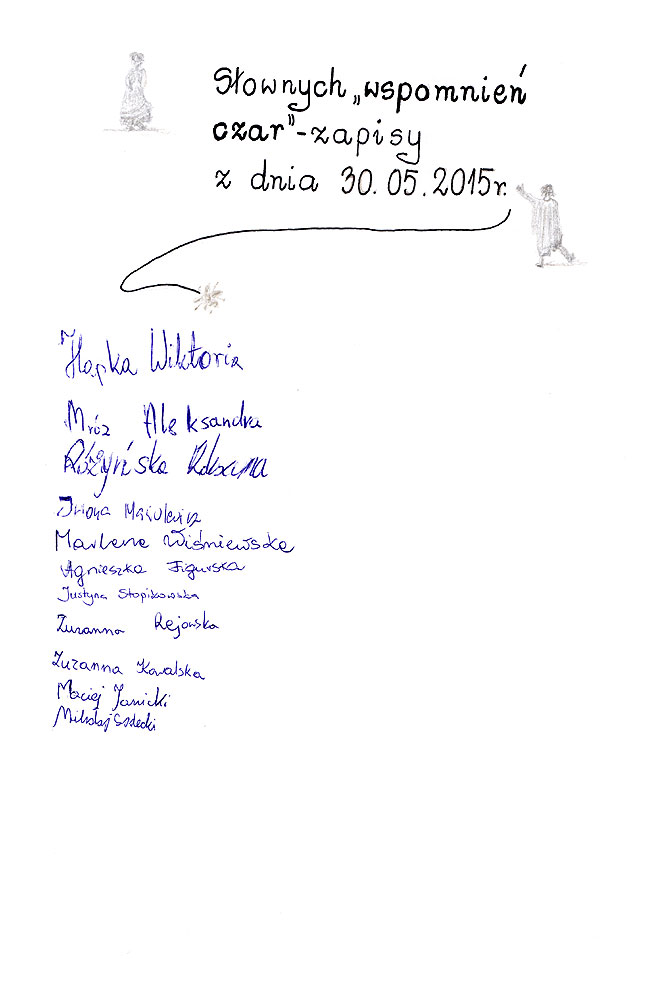 Słownych „wspomnień
czar"-zapisy
z dnia 30.05.2015r.
Wiktoria
Mróz Aleksandra
Różyńska Roksana
Iwona Makulewicz
Marlena Wiśniewska
Agnieszka Figurska
Justyna Stopikowska
Zuzanna Rejowska
Zuzanna Kowalska
Maciej Janicki
Mikołaj